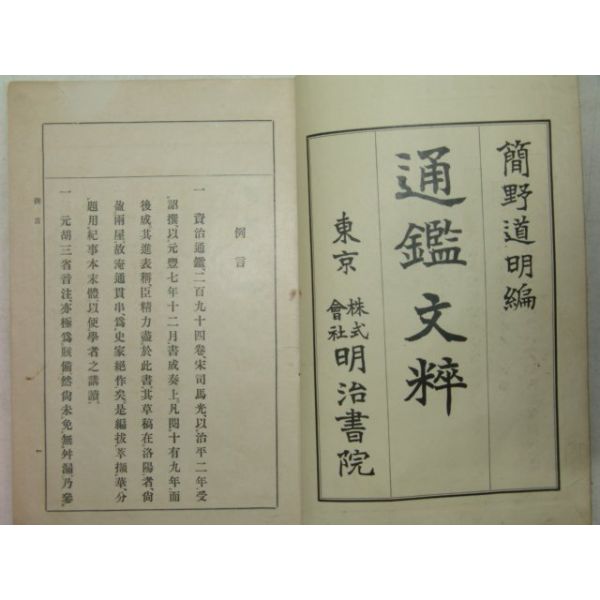 簡野道明編
通鑑文粹
東京 株式會社 明治書院
例言
一 資治通鑑、二百九十四卷、宋司馬光、以治平二年受
詔撰、以元豐七年十二月書成奏上、凡閱十有九年、而
後成、其進表稱、臣精力盡於此書、其草稿在洛陽者、尙
盈兩屋、故淹通貫串、爲史家絕作矣、是編拔萃擷華、分
題用紀事本末體、以便學者之講讀、
一 元胡三省音注、亦極爲賅備、然尙未免無舛漏、乃參
例言
一